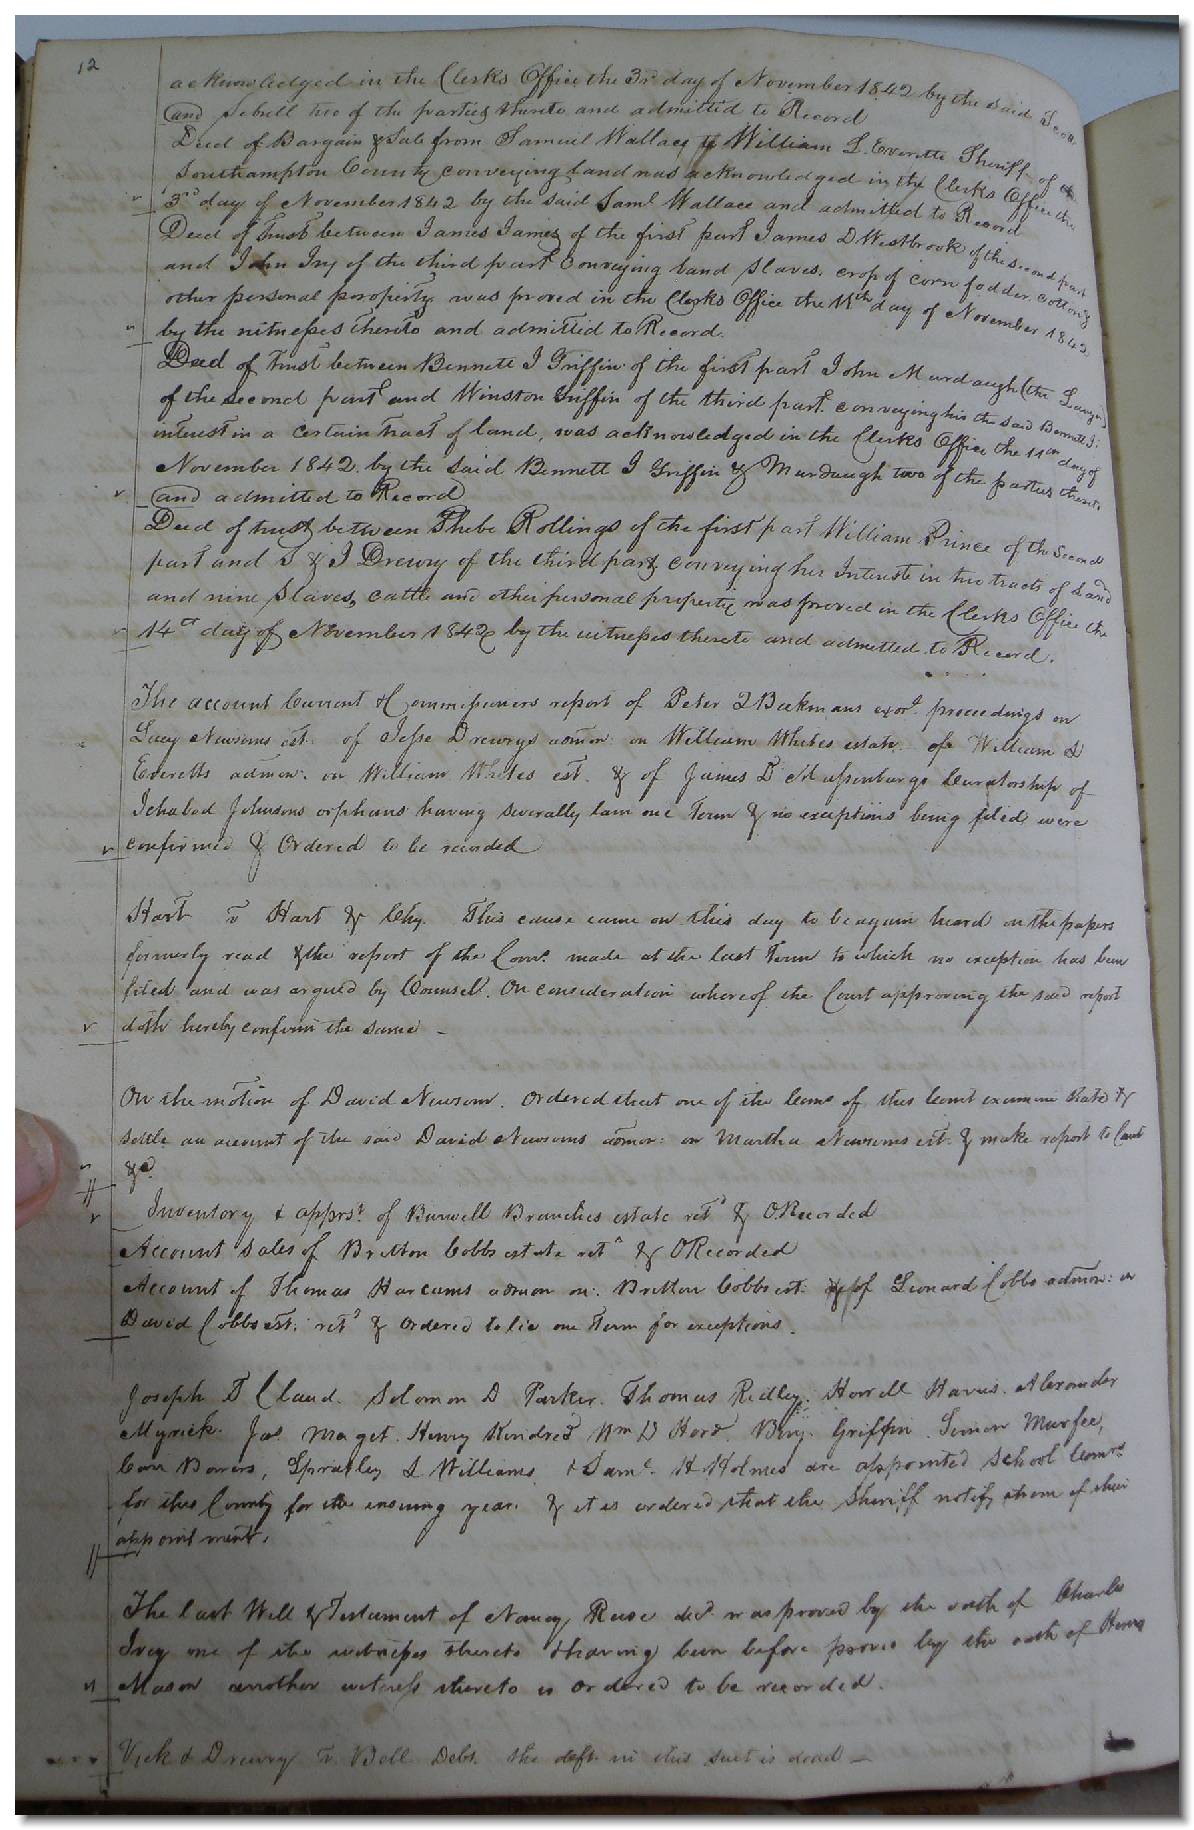 12
acknowledged in the Clerks Office the 3rd day of November 1842 by the said
and Sebrell two of the parties thereto and admitted to Record
Deed of Bargain & Sale from Samuel Wallace to William L. Everette Sheriff of
Southampton County conveying land was acknowledged in the Clerks Office the
3rd day of November 1842 by the said Saml Wallace and admitted to Record
Deed of Trust between James James of the first part James D Westbrook of the second part
and John Ivy of the third part conveying land slaves, crop of corn fodder, cotton &
other personal property was proved in the Clerks Office the 11th day of November 1842
by the witnesses thereto and admitted to Record.
Deed of trust between Bennett J Griffin of the first part John Murdaugh (the
of the second part and Winston Griffin of the third part conveying his the said Bennett J:
interest in a certain tract of land, was acknowledged in the Clerks Office the day of
November 1842 by the said Bennett J Griffin & Murdaugh two of the parties thereto
and admitted to Record
Deed of trust between Phebe Rollings of the first part William Prince of the Second
part and & J Drewry of the third part conveying her Interest in two tracts of Land
and nine slaves, cattle and other personal property was proved in the Clerks Office the
14th day of November 1842 by the witnesses thereto and admitted to Record.
The account Current & Commissioners report of Peter Beekmans exor. proceedings on
Lucy Newsoms est. of Jesse Drewrys admon on William Whites estate. of William L
Everetts admon. on William Whites est. & of James D Massenburgs Curatorship of
Ichabod Johnsons orphans having severally lain one Term & no exceptions being filed were
confirmed & Ordered to be recorded
Hart v Hart & Chy. This cause came on this day to be again heard on the papers
formerly read & the report of the Comr. made at the last Term to which no exception has been
filed and was argued by Counsel. On consideration whereof the Court approving the said report
doth hereby confirm the same _
On the motion of David Newsom. Ordered that one of the Coms of this Court examine State &
settle an account of the said David Newsoms admon: on Martha Newsoms est. & make report to Court
&c.
Inventory & apprst. of Burwell Branches estate retd & ORecorded
Account sales of Britton Cobbs estate retd & ORecorded
Account of Thomas Harcums admon on. Britton Cobbs est. & of Leonard Cobbs admon: on
David Cobbs est. retd & ordered to lie one Term for exceptions.
Joseph T Claud. Solomon D Parker. Thomas Ridley. Howell Harris. Alexander
Myrick. Jas Maget. Henry Kindred Wm D Hood. Benj. Griffin. Simon Murfee,
Carr Bowers, Spratley Williams, & Saml. H Holmes are appointed School Comrs
for this County for the ensuing year. & it is ordered that the Sheriff notify them of their
appointment.
The last Will & Testament of Nancy Reese decd was proved by the oath of Charles
Ivey one of the witnesses thereto & having been before proved by the oath of
Mason another witness thereto is ordered to be recorded.
Vick & Drewry v. Bell Debt. the deft in this suit is dead _